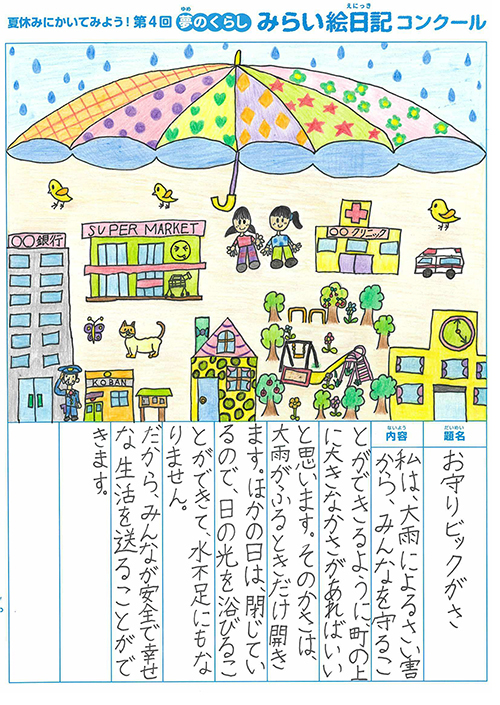 夏休みにかいてみよう！第4回 夢のくらし みらい絵日記コンクール
ゆめ
えにっき
〇〇銀行
SUPER MARKET
〇〇クリニック
KOBAN
だいめい
題名
お守りビックがさ
ないよう
内容
私は、大雨によるさい害
から、みんなを守るこ
とができるように町の上
に大きなかさがあればいい
と思います。そのかさは、
大雨がふるときだけ開き
ます。ほかの日は、閉じてい
るので、日の光を浴びるこ
とができて、水不足にもな
りません。
だから、みんなが安全で幸せ
な生活を送ることがで
きます。